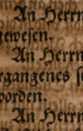 An Herrn
gewesen.
An Herrn
rgangenes s
worden.
An Herrn